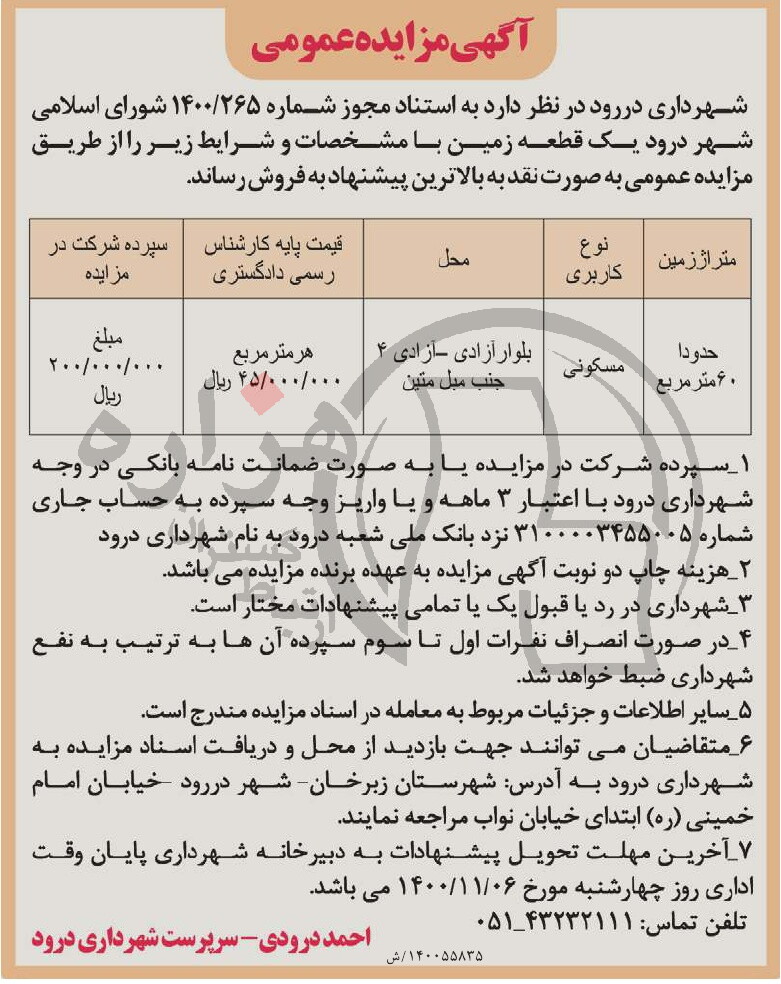 آگهی مزایده عمومی
شهرداری دررود در نظر دارد به استناد مجوز شماره ۱۴۰۰/۲۶۵ شورای اسلامی
شهر درود یک قطعه زمین با مشخصات و شرایط زیر را از طریق
مزایده عمومی به صورت نقد به بالاترین پیشنهاد به فروش رساند.
متراژ زمین | نوع کاربری | محل | قیمت پایه کارشناس رسمی دادگستری | سپرده شرکت در مزایده
حدودا ۶۰مترمربع | مسکونی | بلوار آزادی –آزادی ۴ جنب مبل متین | هرمترمربع ۴۵/۰۰۰/۰۰۰ ریال | مبلغ ۲۰۰/۰۰۰/۰۰۰ ریال
۱_سپرده شرکت در مزایده یا به صورت ضمانت نامه بانکی در وجه
شهرداری درود با اعتبار ۳ ماهه و یا واریز وجه سپرده به حساب جاری
شماره ۳۱۰۰۰۰۳۴۵۵۰۰۵ نزد بانک ملی شعبه درود به نام شهرداری درود
۲_هزینه چاپ دو نوبت آگهی مزایده به عهده برنده مزایده می باشد.
۳_شهرداری در رد یا قبول یک یا تمامی پیشنهادات مختار است.
۴_در صورت انصراف نفرات اول تا سوم سپرده آن ها به ترتیب به نفع
شهرداری ضبط خواهد شد.
۵_سایر اطلاعات و جزئیات مربوط به معامله در اسناد مزایده مندرج است.
۶_متقاضیان می توانند جهت بازدید از محل و دریافت اسناد مزایده به
شهرداری درود به آدرس: شهرستان زبرخان– شهر دررود –خیابان امام
خمینی (ره) ابتدای خیابان نواب مراجعه نمایند.
۷_آخرین مهلت تحویل پیشنهادات به دبیرخانه شهرداری پایان وقت
اداری روز چهارشنبه مورخ ۱۴۰۰/۱۱/۰۶ می باشد.
تلفن تماس: ۴۳۲۳۲۱۱۱_۰۵۱
احمد درودی– سرپرست شهرداری درود
۱۴۰۰۵۵۸۳۵/ش
هزاره